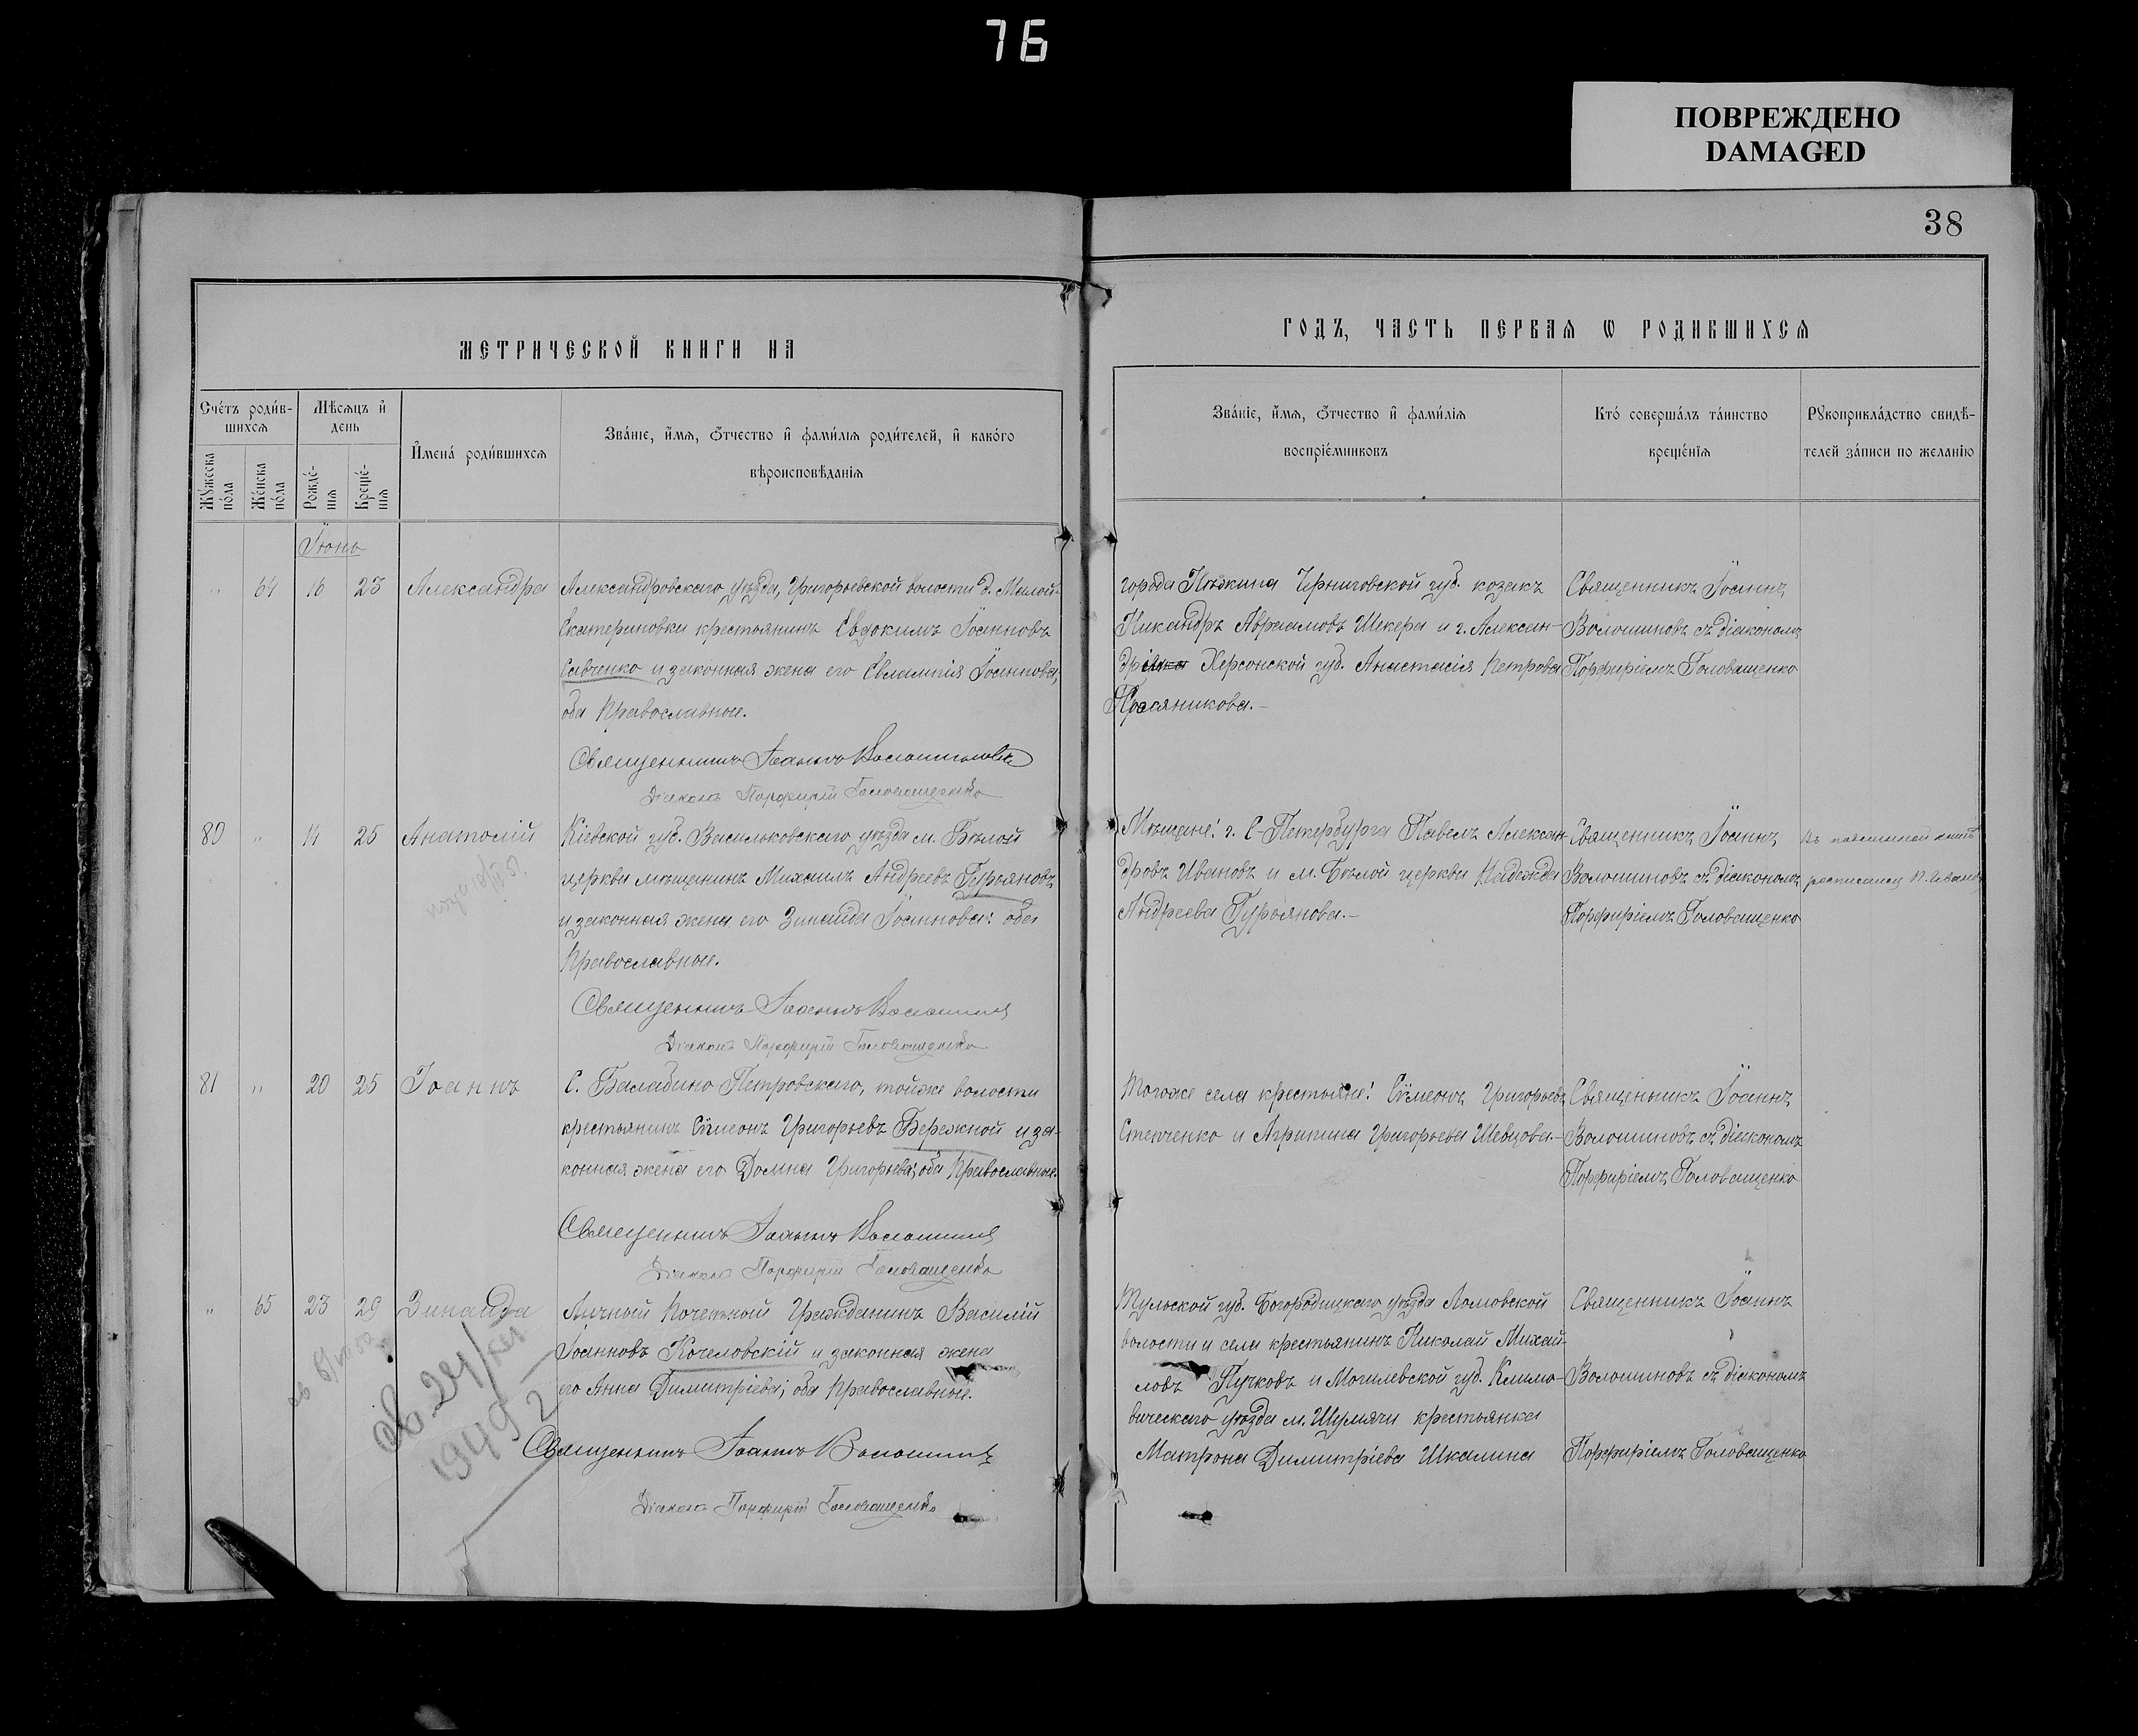 76
ПОВРЕЖДЕНО
DAMAGED
38
МЕТРИЧЕСКОЙ КНИГИ НА
ГОДЪ, ЧАСТЬ ПЕРВАЯ Ѡ РОДИВШИХСЯ
Счéтъ роди́в-
шихся
Мѣсяцъ и҆
день
И҆мена́ роди́вшихся
Зва́нїе, и҆́мя, Ѻ҆́тчество и҆ фами́лїя роди́телей, и҆ како́го
вѣроисповѣ́данїя
Мꙋ́жеска
по́ла
Же́нска
по́ла
Рожде́-
нїя
Креще́-
нїя
Зва́нїе, и҆́мя, Ѻ҆́тчество и҆ фами́лїя
воспрїе́мниковъ
Кто́ соверша́лъ та́инство
креще́нїя
Рꙋкоприкла́дство свидѣ́-
телей за́писи по жела́нїю
Іюнь
" 64 16 23 Александра
Александровскаго уѣзда, Григорьевской волости д. Малой-
Екатериновки крестьянинъ Евдокимъ Іоанновъ
Савченко и законная жена его Евлампія Іоаннова,
оба Православные.
Священникъ Іоаннъ Волошиновъ
Діаконъ Порфирій Головащенко
города Нѣжина Черниговской губ. козакъ
Никандръ Авраамовъ Шекера и г. Алексан-
дріи Херсонской губ. Анастасія Петрова
Просяникова.-
Священникъ Іоаннъ
Волошиновъ съ діакономъ
Порфиріемъ Головащенко
80 " 14 25 Анатолій
Кіевской губ. Васильковскаго уѣзда м. Бѣлой
церкви мѣщанинъ Михаилъ Андреевъ Гурьяновъ
и законная жена его Зинаида Іоаннова: оба
Православные.
Священникъ Іоаннъ Волошиновъ
Діаконъ Порфирій Головащенко
Мѣщане: г. С-Петербурга Павелъ Алексан-
дровъ Ивановъ и м. Бѣлой церкви Надежда
Андреева Гурьянова.-
Священникъ Іоаннъ
Волошиновъ съ діакономъ
Порфиріемъ Головащенко
росписался П. Ивановъ
81 " 20 25 Іоаннъ
С. Балабино-Петровскаго, тойже волости
крестьянинъ Сѵмеонъ Григорьевъ Бережной и за-
конная жена его Домна Григорьева; оба Православные.
Священникъ Іоаннъ Волошиновъ
Діаконъ Порфирій Головащенко
Тогоже села крестьяне: Сѵмеонъ Григорьевъ
Степченко и Агрипина Григорьева Шевцова.-
Священникъ Іоаннъ
Волошиновъ съ діакономъ
Порфиріемъ Головащенко
" 65 23 29 Зинаида
Личный Почетный Гражданинъ Василій
Іоанновъ Кочеловскій и законная жена
его Анна Димитріева; оба Православные.
Священникъ Іоаннъ Волошиновъ
Діаконъ Порфирій Головащенко
1949 2
Тульской губ. Богородицкаго уѣзда Ломовской
волости и села крестьянинъ Николай Михай-
ловъ Пучковъ и Могилевской губ. Климо-
вическаго уѣзда м. Шумячи крестьянка
Матрона Димитріева Шкалина
Священникъ Іоаннъ
Волошиновъ съ діакономъ
Порфиріемъ Головащенко